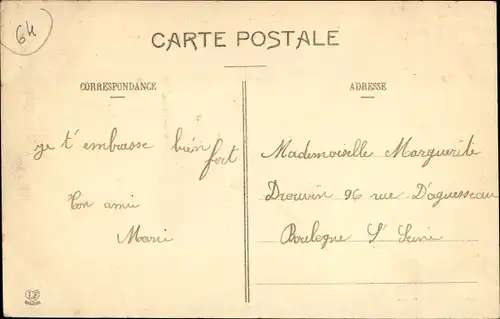 64
CARTE POSTALE
CORRESPONDANCE
ADRESSE
je t'embrasse bien
fort
Ton amie
Marie
Mademoiselle Marguerite
Drouvin 96 rue D'aguesseau
Boulogne S/ Seine
LF